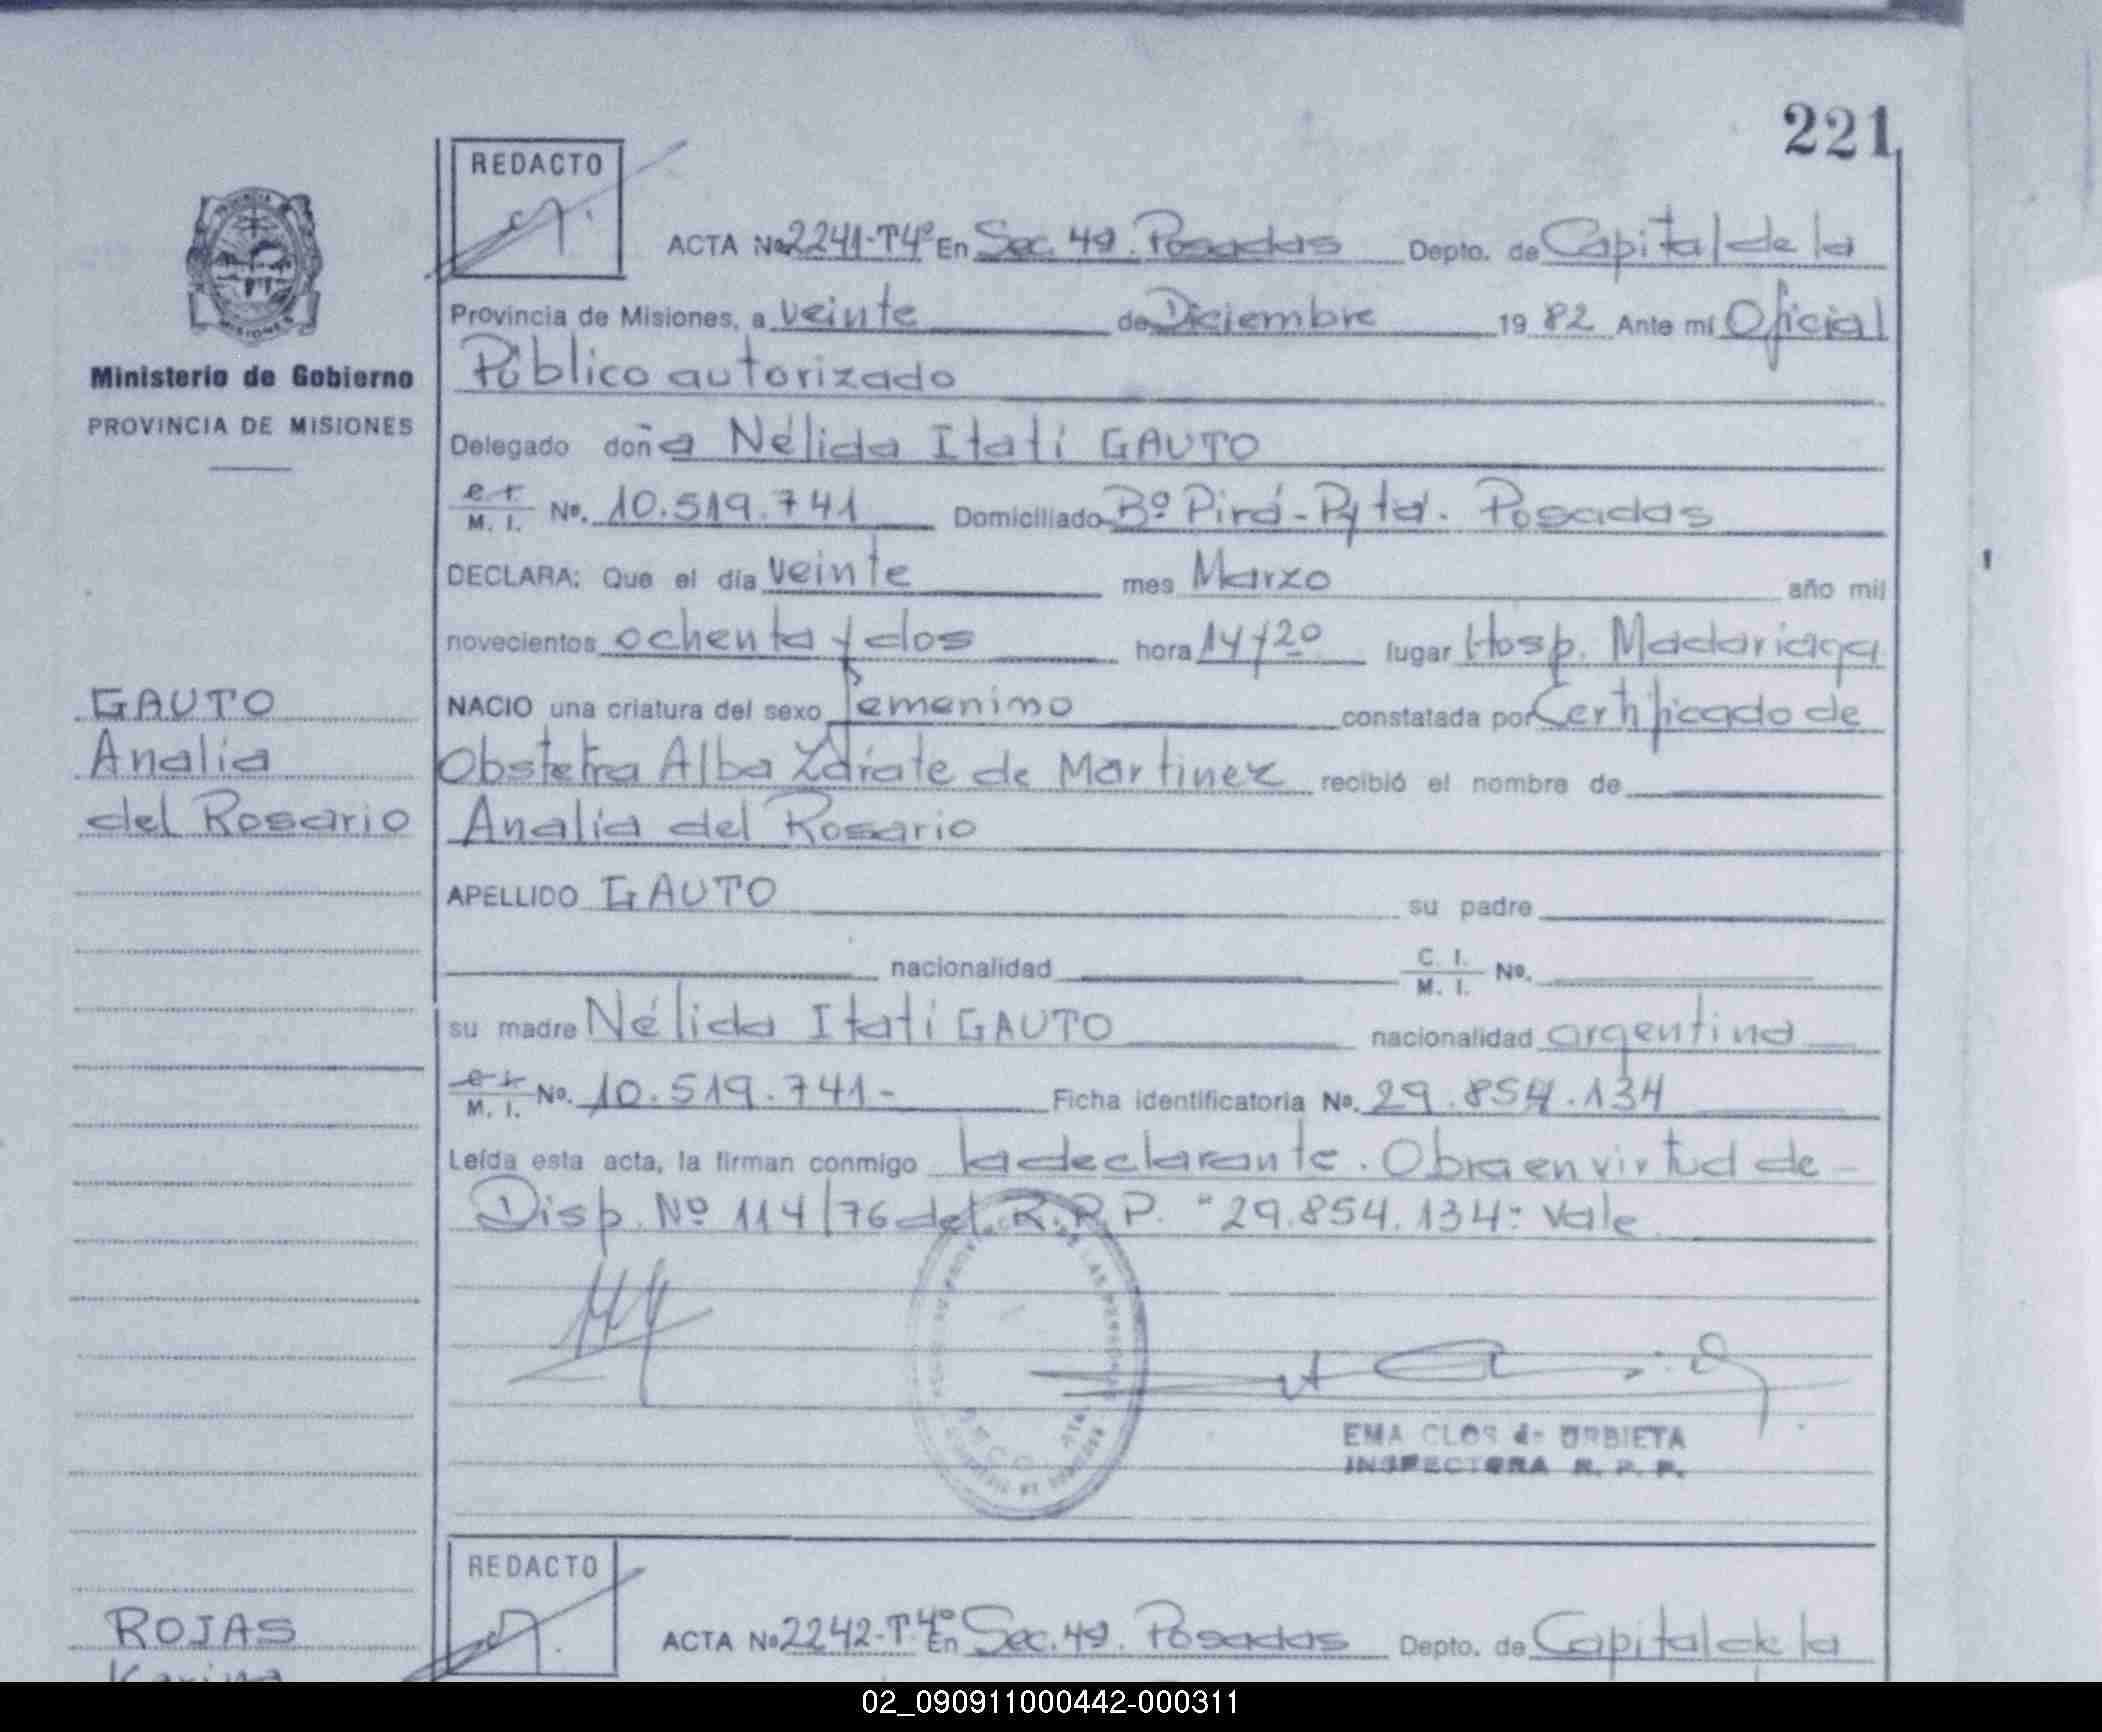 221
REDACTO
ACTA No 2241-T4º En Sec. 4ª. Posadas Depto. de Capital de la
Provincia de Misiones, a veinte de Diciembre 19 82 Ante mí Oficial
Público autorizado
Ministerio de Gobierno
PROVINCIA DE MISIONES
Delegado doña Nélida Itatí GAUTO
M. I. No. 10.519.741 Domiciliado Bº Pirá-Pytá. Posadas
DECLARA: Que el día veinte mes Marzo año mil
novecientos ochenta y dos hora 14 y 20 lugar Hosp. Madariaga
GAUTO
Analía
del Rosario
NACIO una criatura del sexo femenino constatada por Certificado de
Obstetra Alba Zárate de Martinez recibió el nombre de
Analía del Rosario
APELLIDO GAUTO su padre
nacionalidad C. I. M. I. No.
su madre Nélida Itatí GAUTO nacionalidad argentina
M. I. No. 10.519.741- Ficha identificatoria No. 29.854.134
Leída esta acta, la firman conmigo la declarante. Obra en virtud de-
Disp. Nº 114/76 del R.P.P. "29.854.134": Vale
EMA CLOS de URBIETA
INSPECTORA R. P. P.
REDACTO
ACTA No 2242-T.4º En Sec. 4ª. Posadas Depto. de Capital de la
ROJAS
Karina
02_090911000442-000311